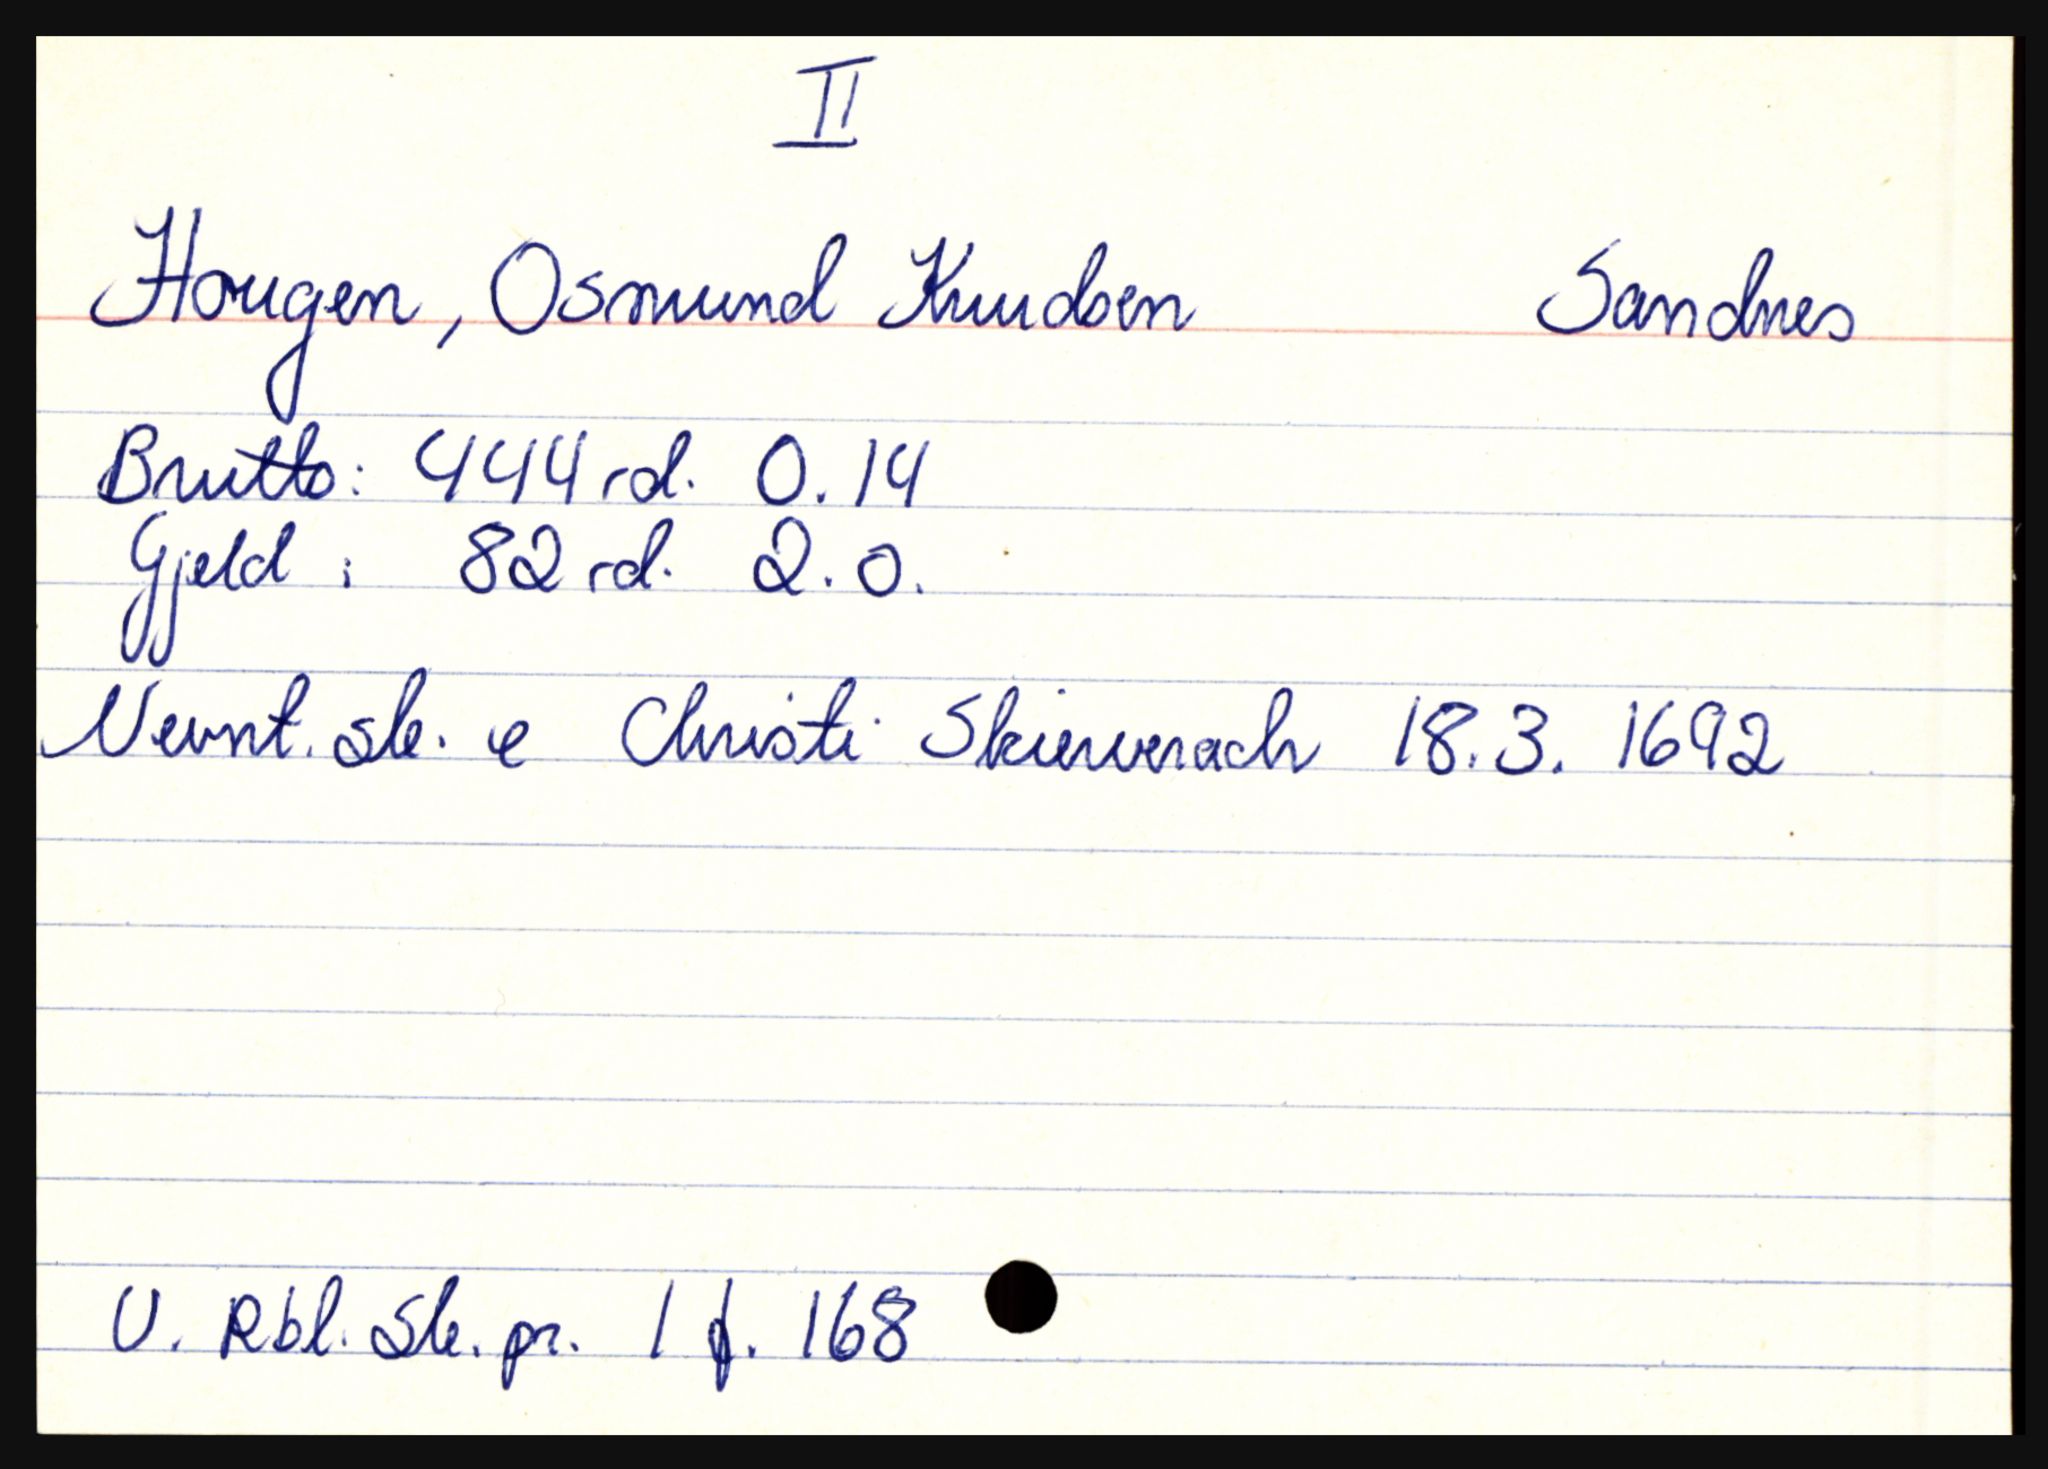 II
Hougen, Osmund Knudsen Sandnes
Brutto: 444 rd. 0.14
Gjeld: 82 rd. 2.0.
Nevnt. sk. e Christi Skierverach 18.3. 1692
U. Rbl. Sk. pr. 1 f. 168